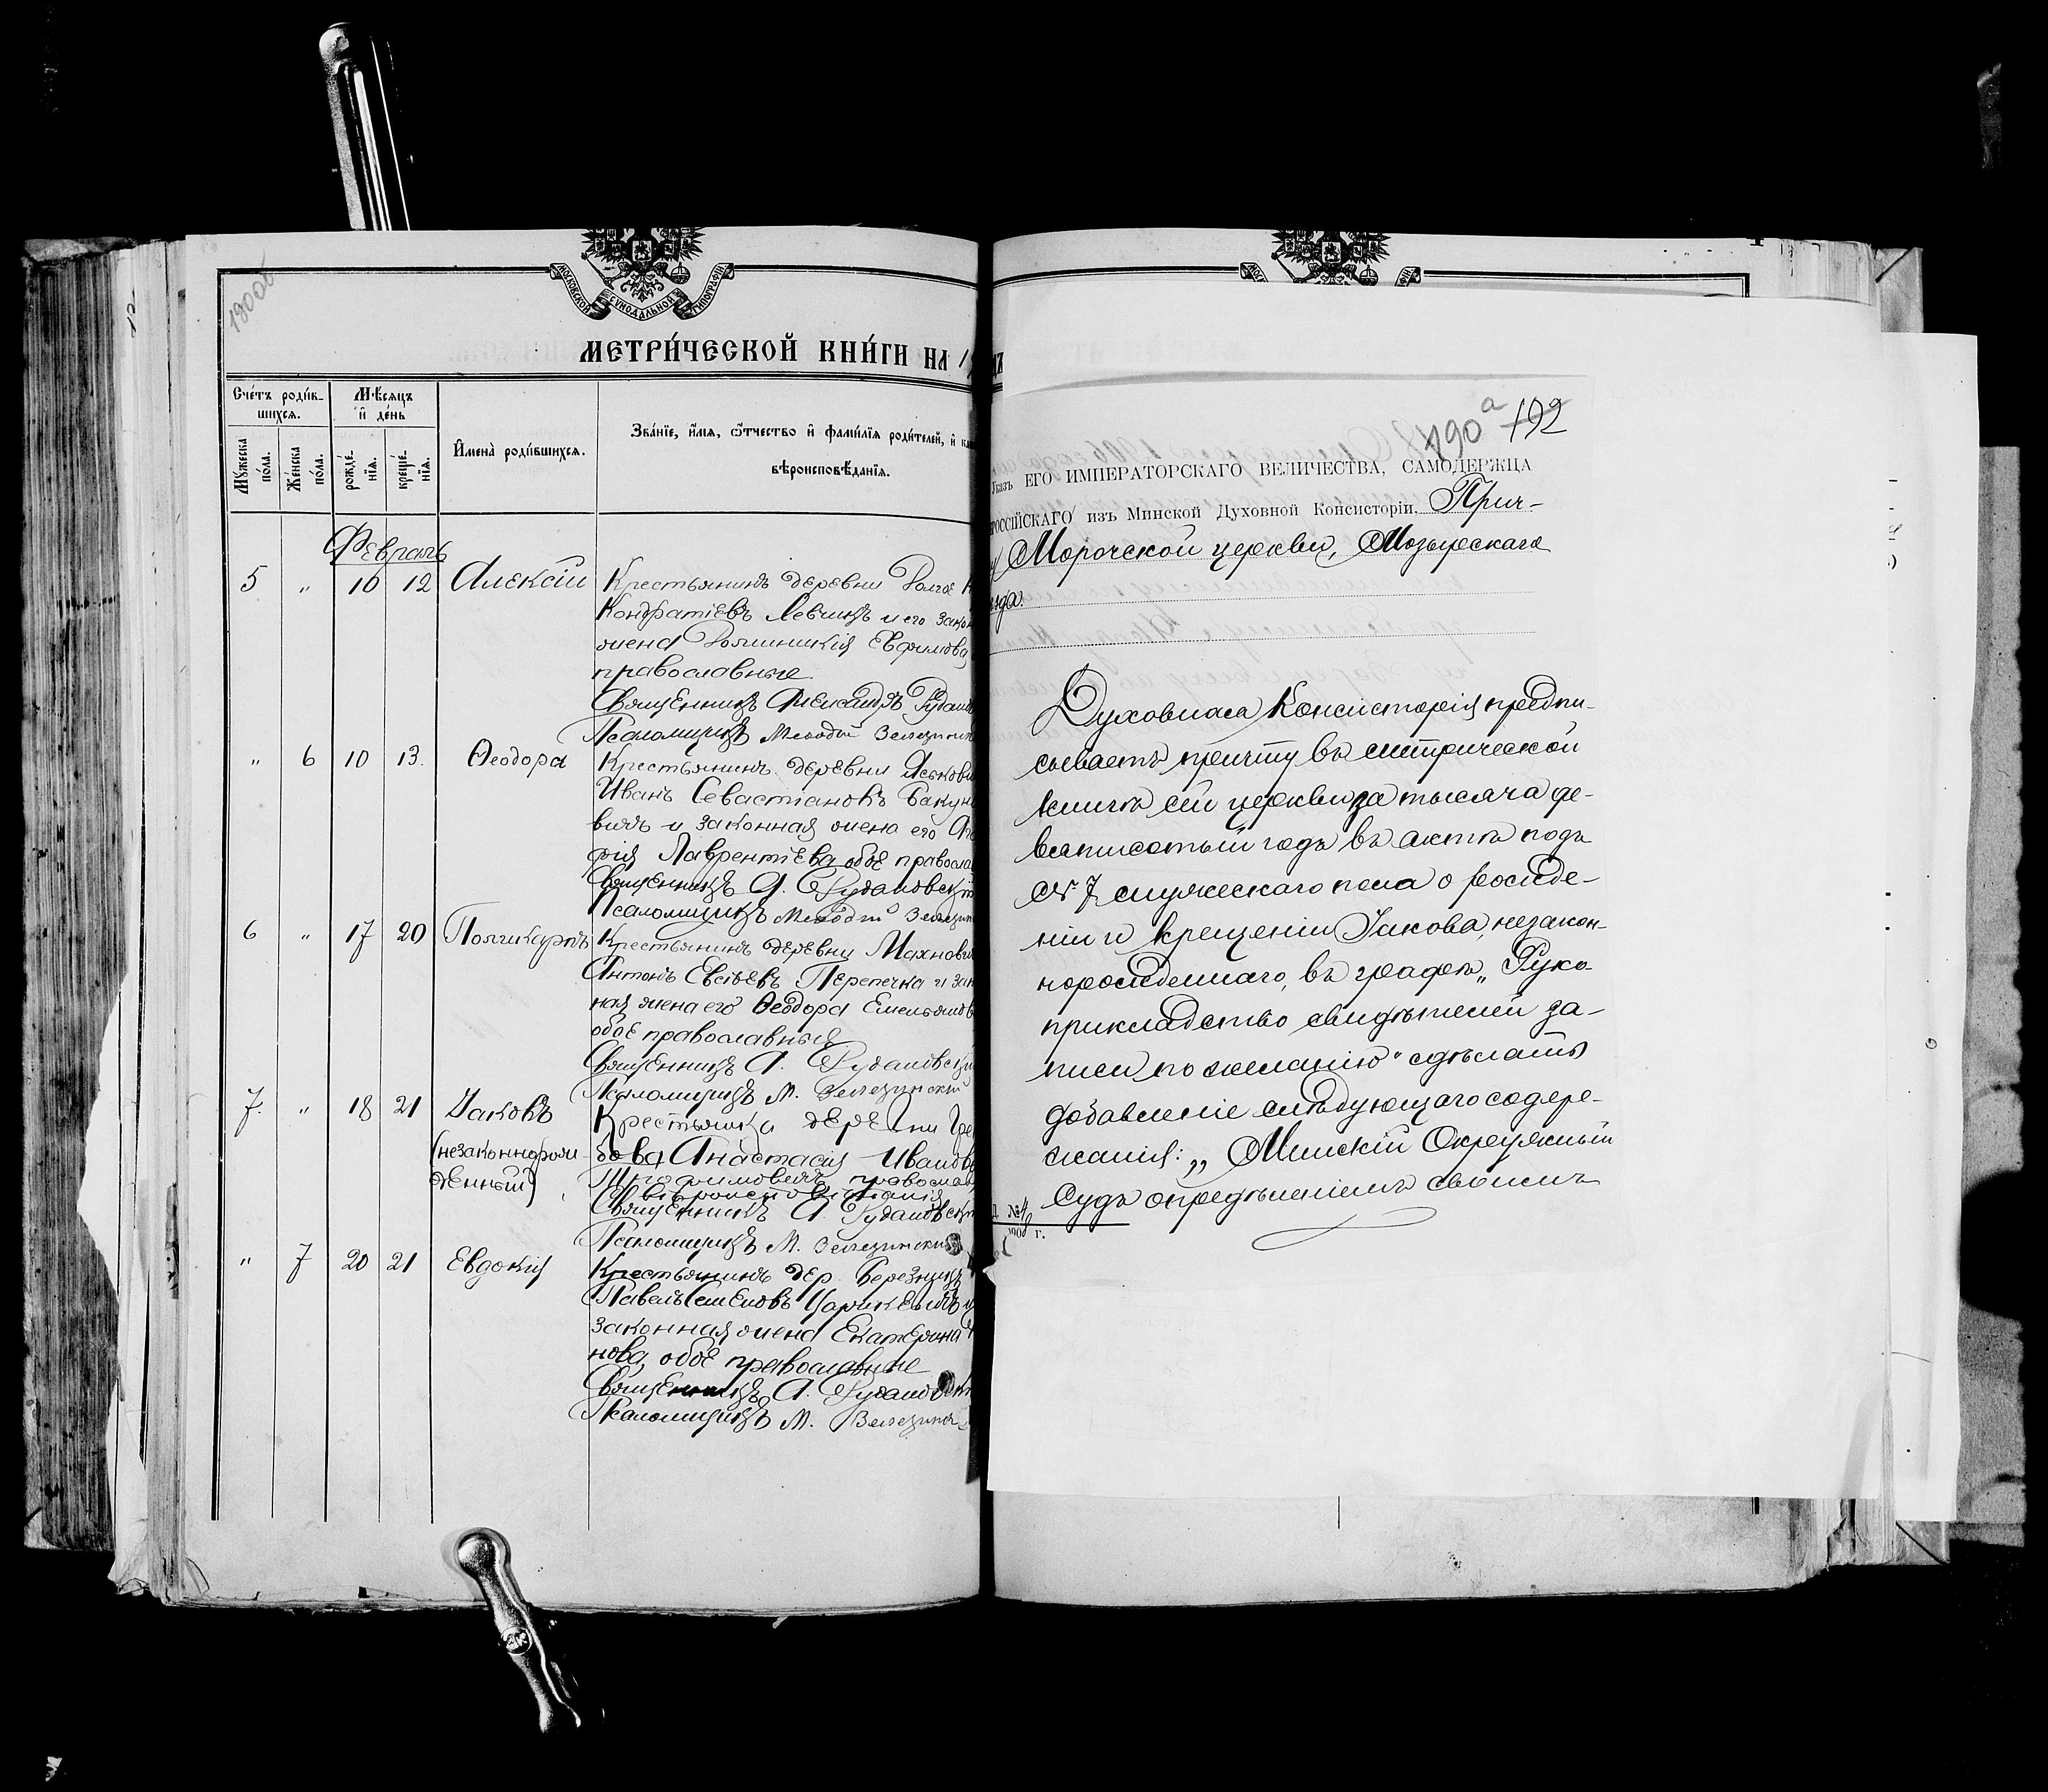 1900
МОСКОВСКОЙ СѴНОДАЛЬНОЙ ТИПОГРАФІИ
МЕТРИ́ЧЕСКОЙ КНИ́ГИ НА 19
Сче́тъ роди́в-
шихся.
Мѣ́сяцъ
и҆ де́нь
Мꙋ́жеска по́ла.
Же́нска по́ла.
рожде́-
нїя.
креще́-
нїя.
И҆мена̀ роди́вшихся.
Зва́нїе, и҆́мя, ѻ҆́тчество и҆ фами́лїя роди́телей, и҆ как
вѣроисповѣ́данїя.
Февраль
5 " 10 12 Алексій Крестьянинъ деревни Долгое
Кондратіевъ Левчикъ и его закон
жена Евфимова
православные
Священникъ Александръ Рудаковс
Псаломщикъ Меѳодій
" 6 10 13. Ѳеодора Крестьянинъ деревни Яськови
Иванъ Севастіановъ Бакун
вичъ и законная жена его Ага
фія Лаврентіева обое правосла
Священникъ А. Рудаковскій
Псаломщикъ Меѳодій
6 " 17 20 Поликарпъ Крестьянинъ деревни Махнови
Антонъ Евсѣевъ Перепечка и зак
ная жена его Ѳеодора Емельянов
обое православныя
Священникъ А. Рудаковскій
Псаломщикъ М.
7. " 18 21 Іаковъ Крестьянка деревни
(незаконнорож- Анастасія Иванов
денный) православ
вѣроисповѣданія
Священникъ А. Рудаковскій
Псаломщикъ М.
" 7 20 21 Евдокія Крестьянинъ дер.
Павелъ Семеновъ Царикевичъ и
законная жена Екатерина
нова, обое православные
Священникъ А. Рудаковскі
Псаломщикъ М.
190 а 192
Указъ ЕГО ИМПЕРАТОРСКАГО ВЕЛИЧЕСТВА, САМОДЕРЖЦА
РОССІЙСКАГО изъ Минской Духовной Консисторіи, Прич-
у Морочской церкви, Мозырскаго
ѣзда.
Духовная Консисторія предпи-
сываетъ причту въ метрической
книгѣ сей церкви за тысяча де-
вятисотый годъ въ актѣ подъ
№ 7 мужескаго пола о рожде-
ніи и крещеніи Іакова, незакон-
норожденнаго, въ графѣ „Руко-
прикладство свидѣтелей за-
писи по желанію" сдѣлать
добавленіе слѣдующаго содер-
жанія: „Минскій Окружный
Судъ опредѣленіемъ своимъ
№ 4
1908 г.